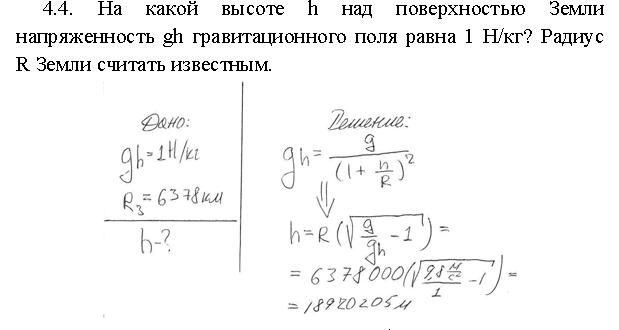 4.4. На какой высоте h над поверхностью Земли
напряженность gh гравитационного поля равна 1 Н/кг? Радиус
R Земли считать известным.
Дано:
gh=1Н/кг
R₃=6378км
h-?
Решение:
gh = g/(1+h/R)²
⇓
h=R(√(g/gh) -1) =
= 6378000(√(9,8 м/с²/1) -1) =
=18920205м